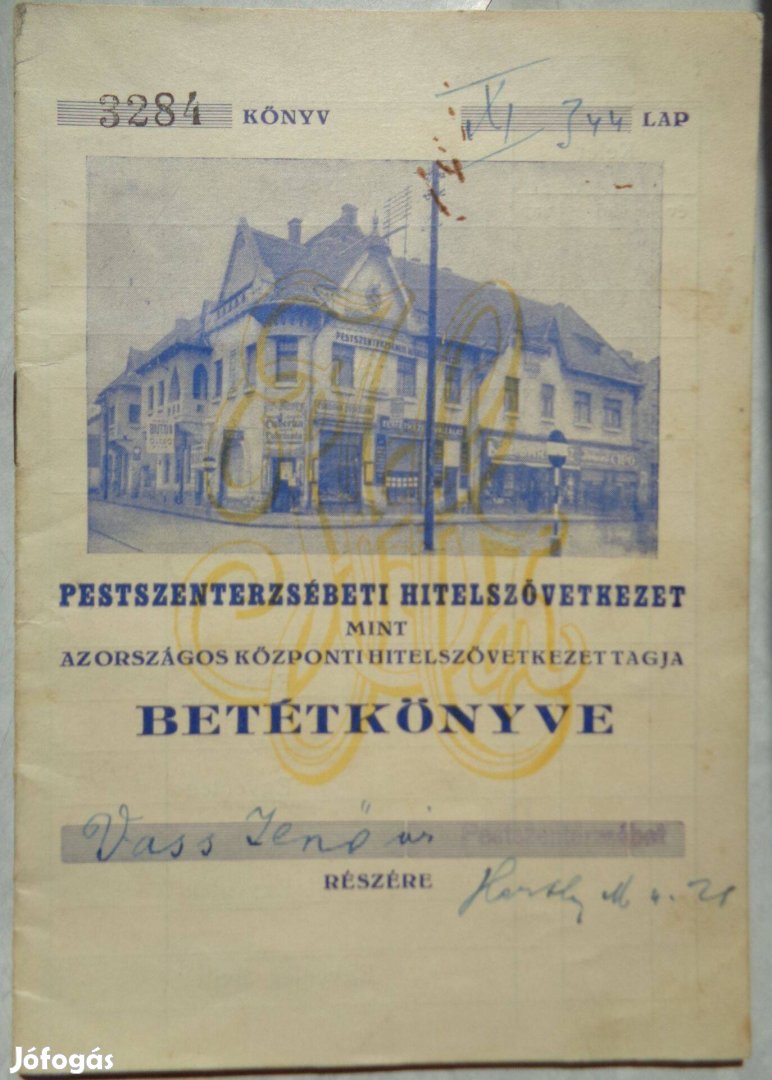 3284 KÖNYV XI 344 LAP
PESTSZENTERZSÉBETI
PESTSZENTERZSÉBETI HITELSZÖVETKEZET
MINT
AZ ORSZÁGOS KÖZPONTI HITELSZÖVETKEZET TAGJA
BETÉTKÖNYVE
Vass Jenő úr Pestszenterzsébet
RÉSZÉRE
Horthy M u. 21
Jófogás